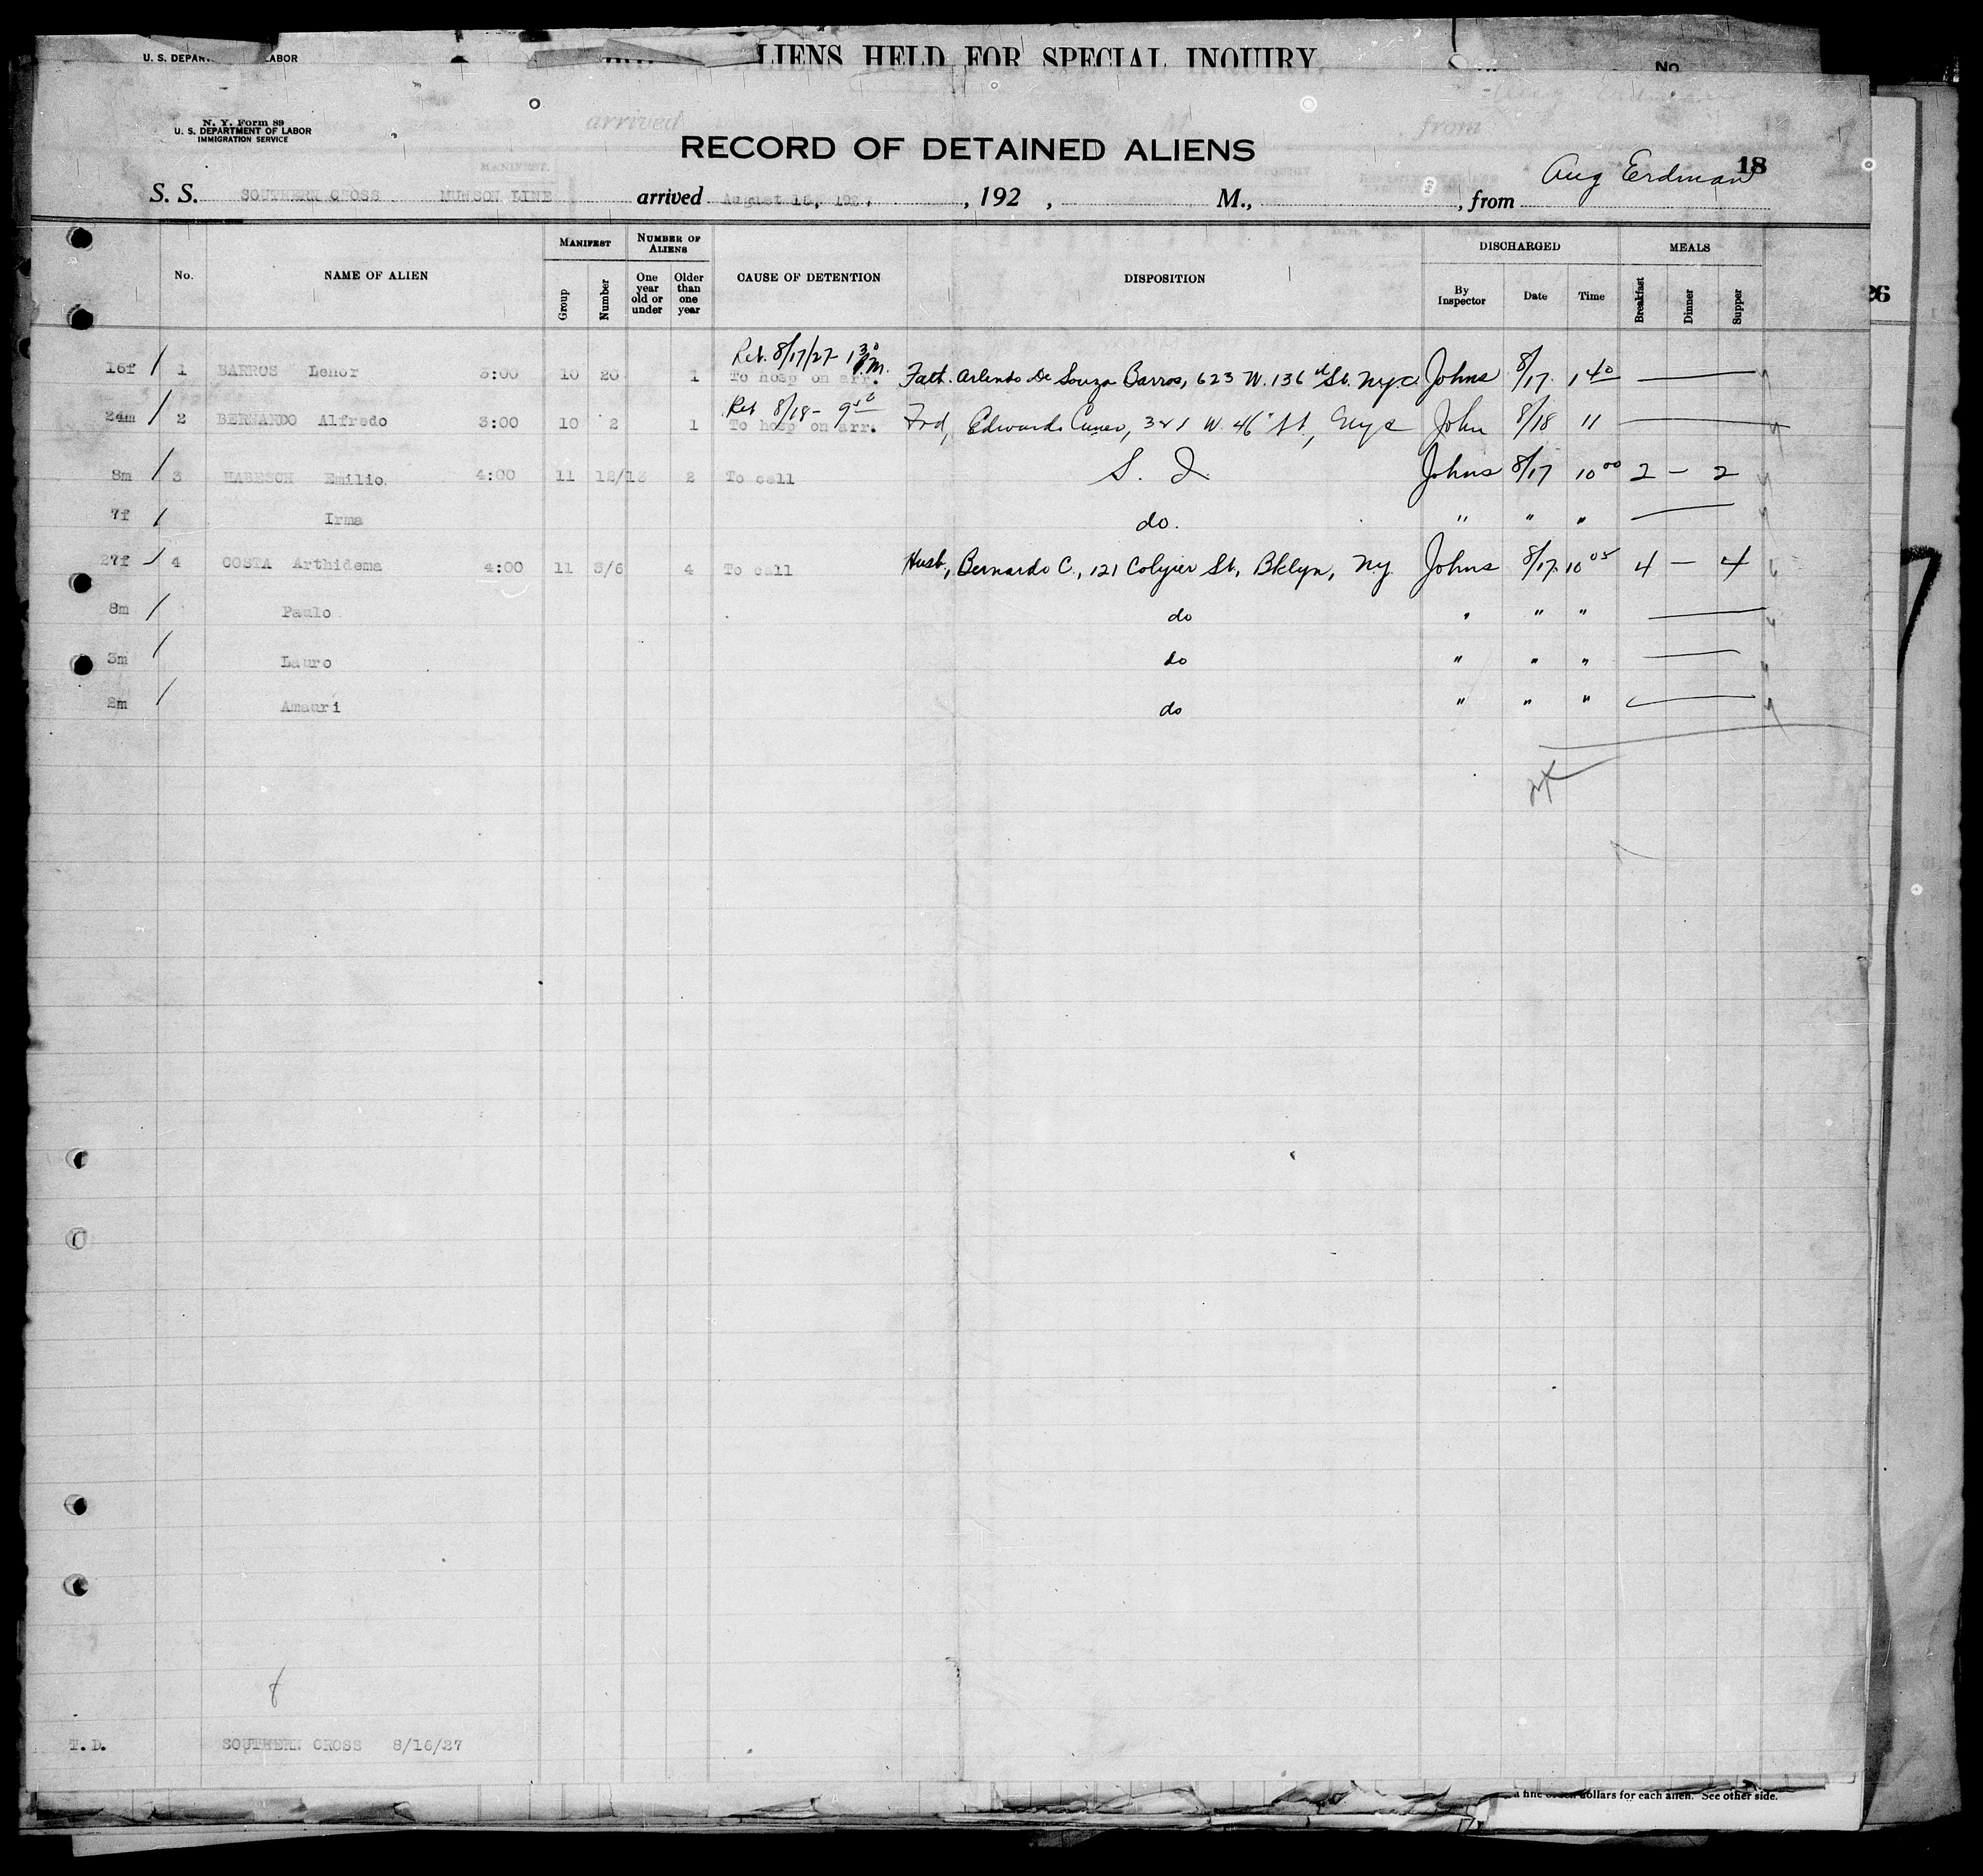 U. S. DEPAR LABOR
LIENS HELD FOR SPECIAL INQUIRY.
No.
N. Y. Form 89
U. S. DEPARTMENT OF LABOR
IMMIGRATION SERVICE
RECORD OF DETAINED ALIENS
18
Aug Erdman
S. S. SOUTHERN CROSS MUNSON LINE arrived August 16, 192 , 192 , M., , from
No. NAME OF ALIEN MANIFEST Group Number NUMBER OF ALIENS One year old or under Older than one year CAUSE OF DETENTION DISPOSITION DISCHARGED By Inspector Date Time MEALS Breakfast Dinner Supper
26
Ret. 8/17/27 - 1 30 P.M.
16f / 1 BARROS Lenor 3:00 10 20 1 To hosp on arr. Fath. Arlindo De Souza Barros, 623 W. 136 St. NYC Johns 8/17 1 40
Ret 8/18 - 9
24m / 2 BERNARDO Alfredo 3:00 10 2 1 To hosp on arr. Frd, Edwardo W. 46" St, NYC John 8/18 11
8m / 3 HABESCH Emilio 4:00 11 12/13 2 To call S. I. Johns 8/17 10 00 2 — 2
7f / Irma do. " " "
27f / 4 COSTA Arthidema 4:00 11 3/6 4 To call Husb, Bernardo C., 121 Colyier St, Bklyn, NY Johns 8/17 10 05 4 — 4
8m / Paulo do " " "
3m / Lauro do " " "
2m / Amauri do " " "
T. D. SOUTHERN CROSS 8/16/27
dollars for each alien. See other side.